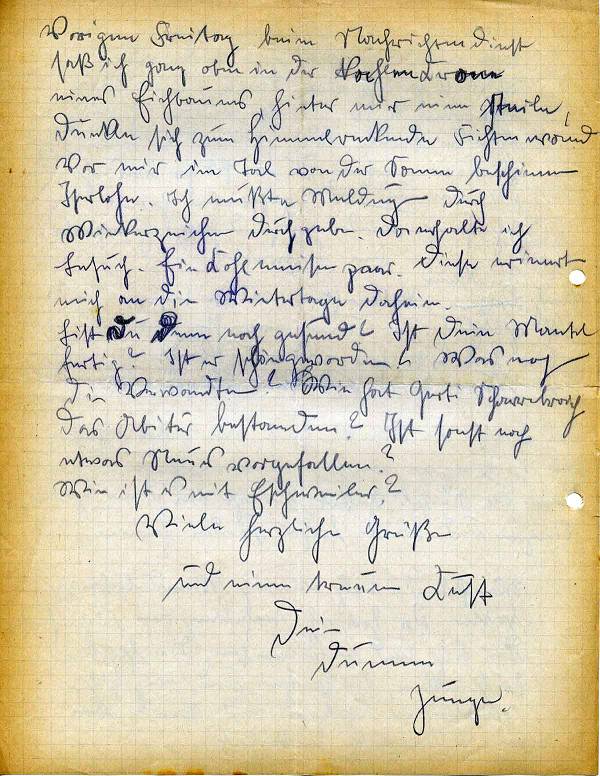 Vorigen Freitag beim Nachrichtendienst
saß ich ganz oben in der Krone
eines Eichbaums, hinter mir eine steile,
dunkle sich zum Himmel reckende Fichtenwand
vor mir im Tal von der Sonne beschienen
Iserlohn. Ich mußte Meldung durch
Winkerzeichen durchgeben. Da erhalte ich
Besuch. Ein Kohlmeisenpaar. Diese erinnert
mich an die Wintertage daheim.
Bist Du Denn noch gesund? Ist Dein Mantel
fertig? Ist er schön geworden? Was
die Verwandten? Wie hat Gerti
das Abitur bestanden? Ist sonst noch
etwas Neues vorgefallen?
Wie ist es mit Eschweiler?
Viele herzliche Grüße
und einen treuen Kuß
Dein
dummer
Junge.